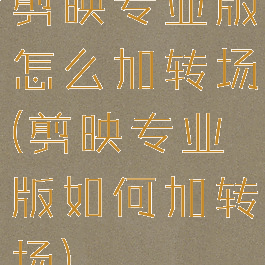 剪映专业版
怎么加转场
(剪映专业
版如何加转
场)